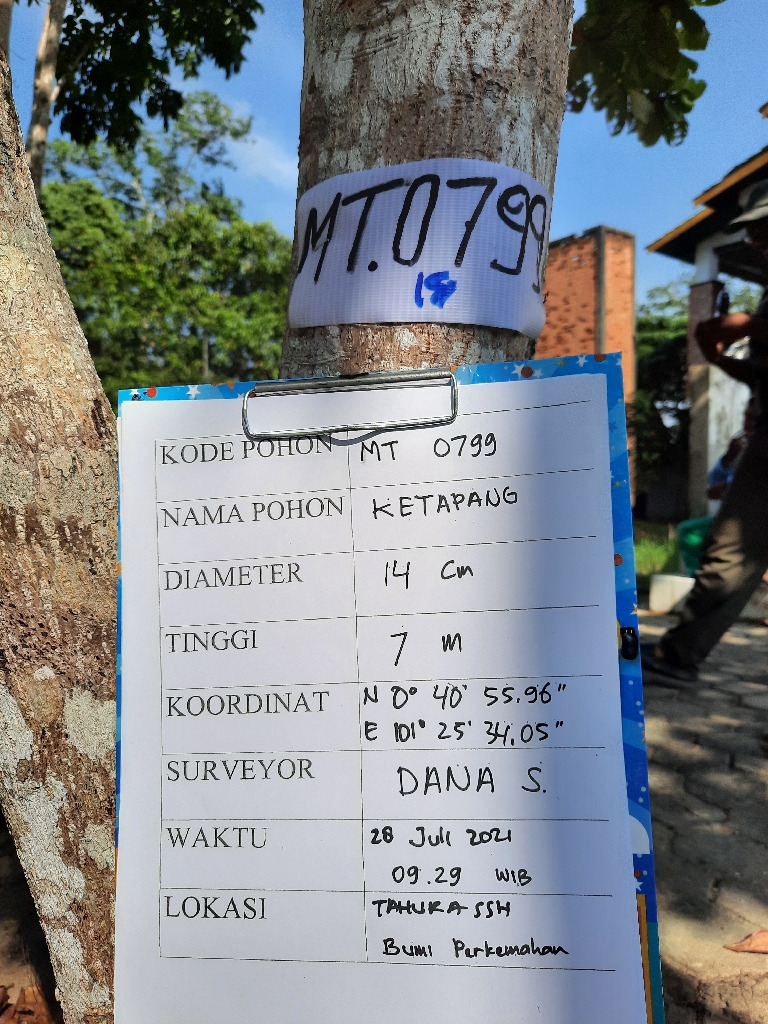 MT.0799
18
KODE POHON MT 0799
NAMA POHON KETAPANG
DIAMETER 14 Cm
TINGGI 7 m
KOORDINAT N 0° 40' 55.96"
E 101° 25' 34.05"
SURVEYOR DANA S.
WAKTU 28 Juli 2021
09.29 WIB
LOKASI TAHURA SSH
Bumi Perkemahan